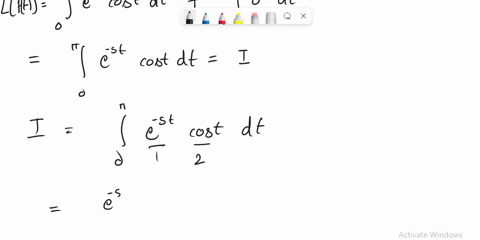 L(f(t)) = ∫₀ e cost dt + 0 dt
= ∫₀^π e^{-st} cost dt = I
I = ∫₀^π e^{-st} cost dt
1 2
= e^{-s}
Activate Windows